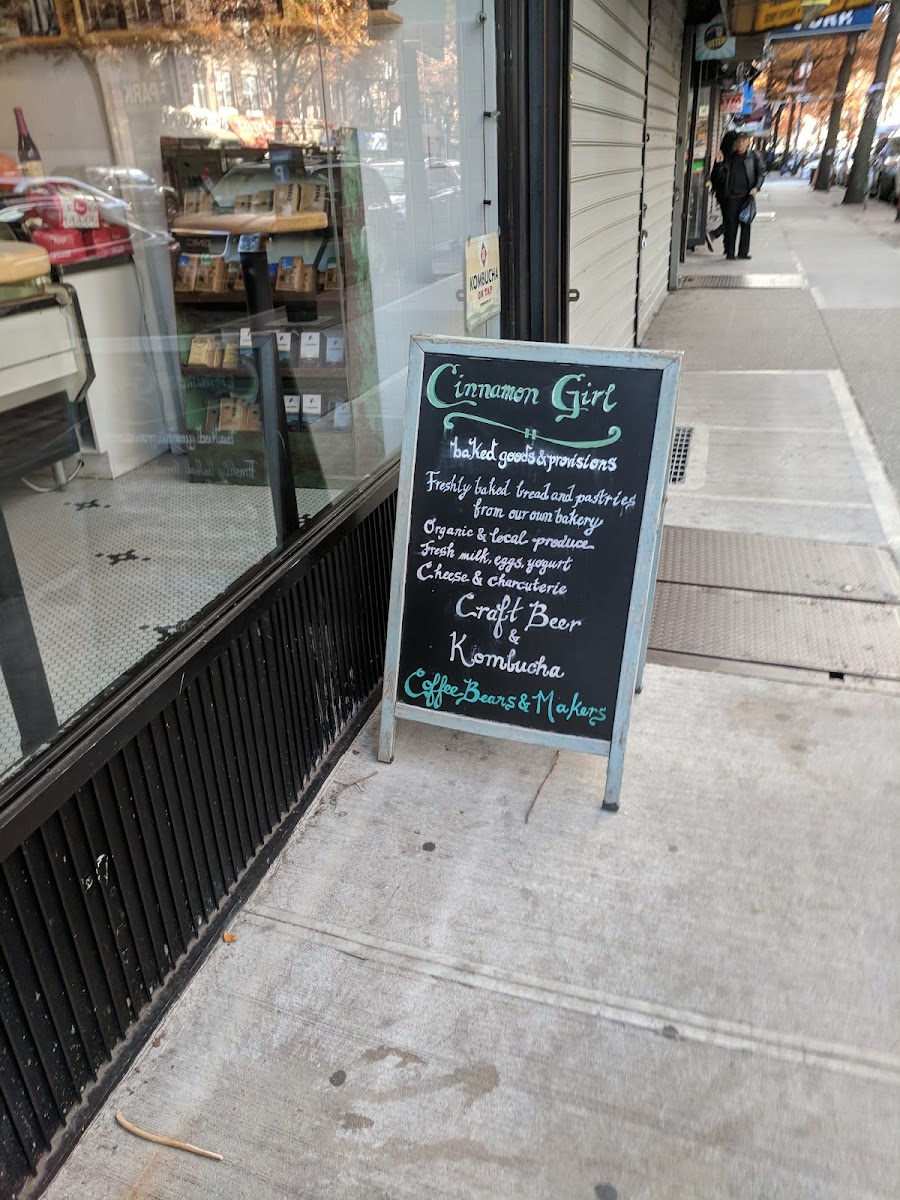 Cinnamon Girl
baked goods & provisions
Freshly baked bread and pastries
from our own bakery
Organic & local produce
Fresh milk, eggs, yogurt
Cheese & charcuterie
Craft Beer
&
Kombucha
Coffee Beans & Makers
KOMBUCHA
ON TAP